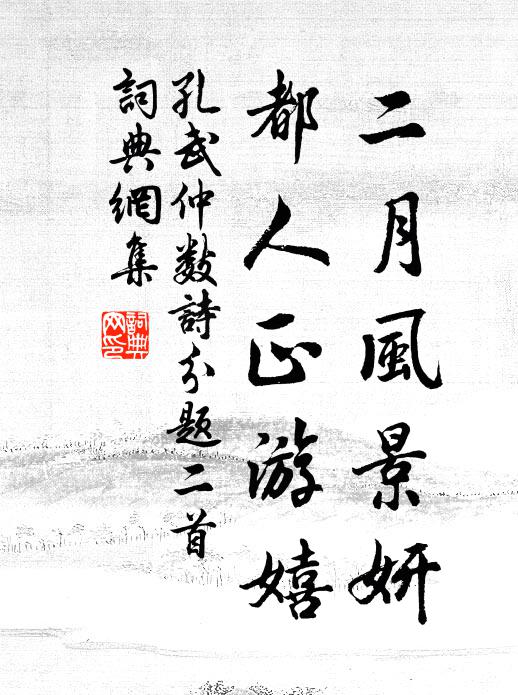 二月風景妍
都人正游嬉
孔武仲數詩分題二首
詞典網集
詞典
网印